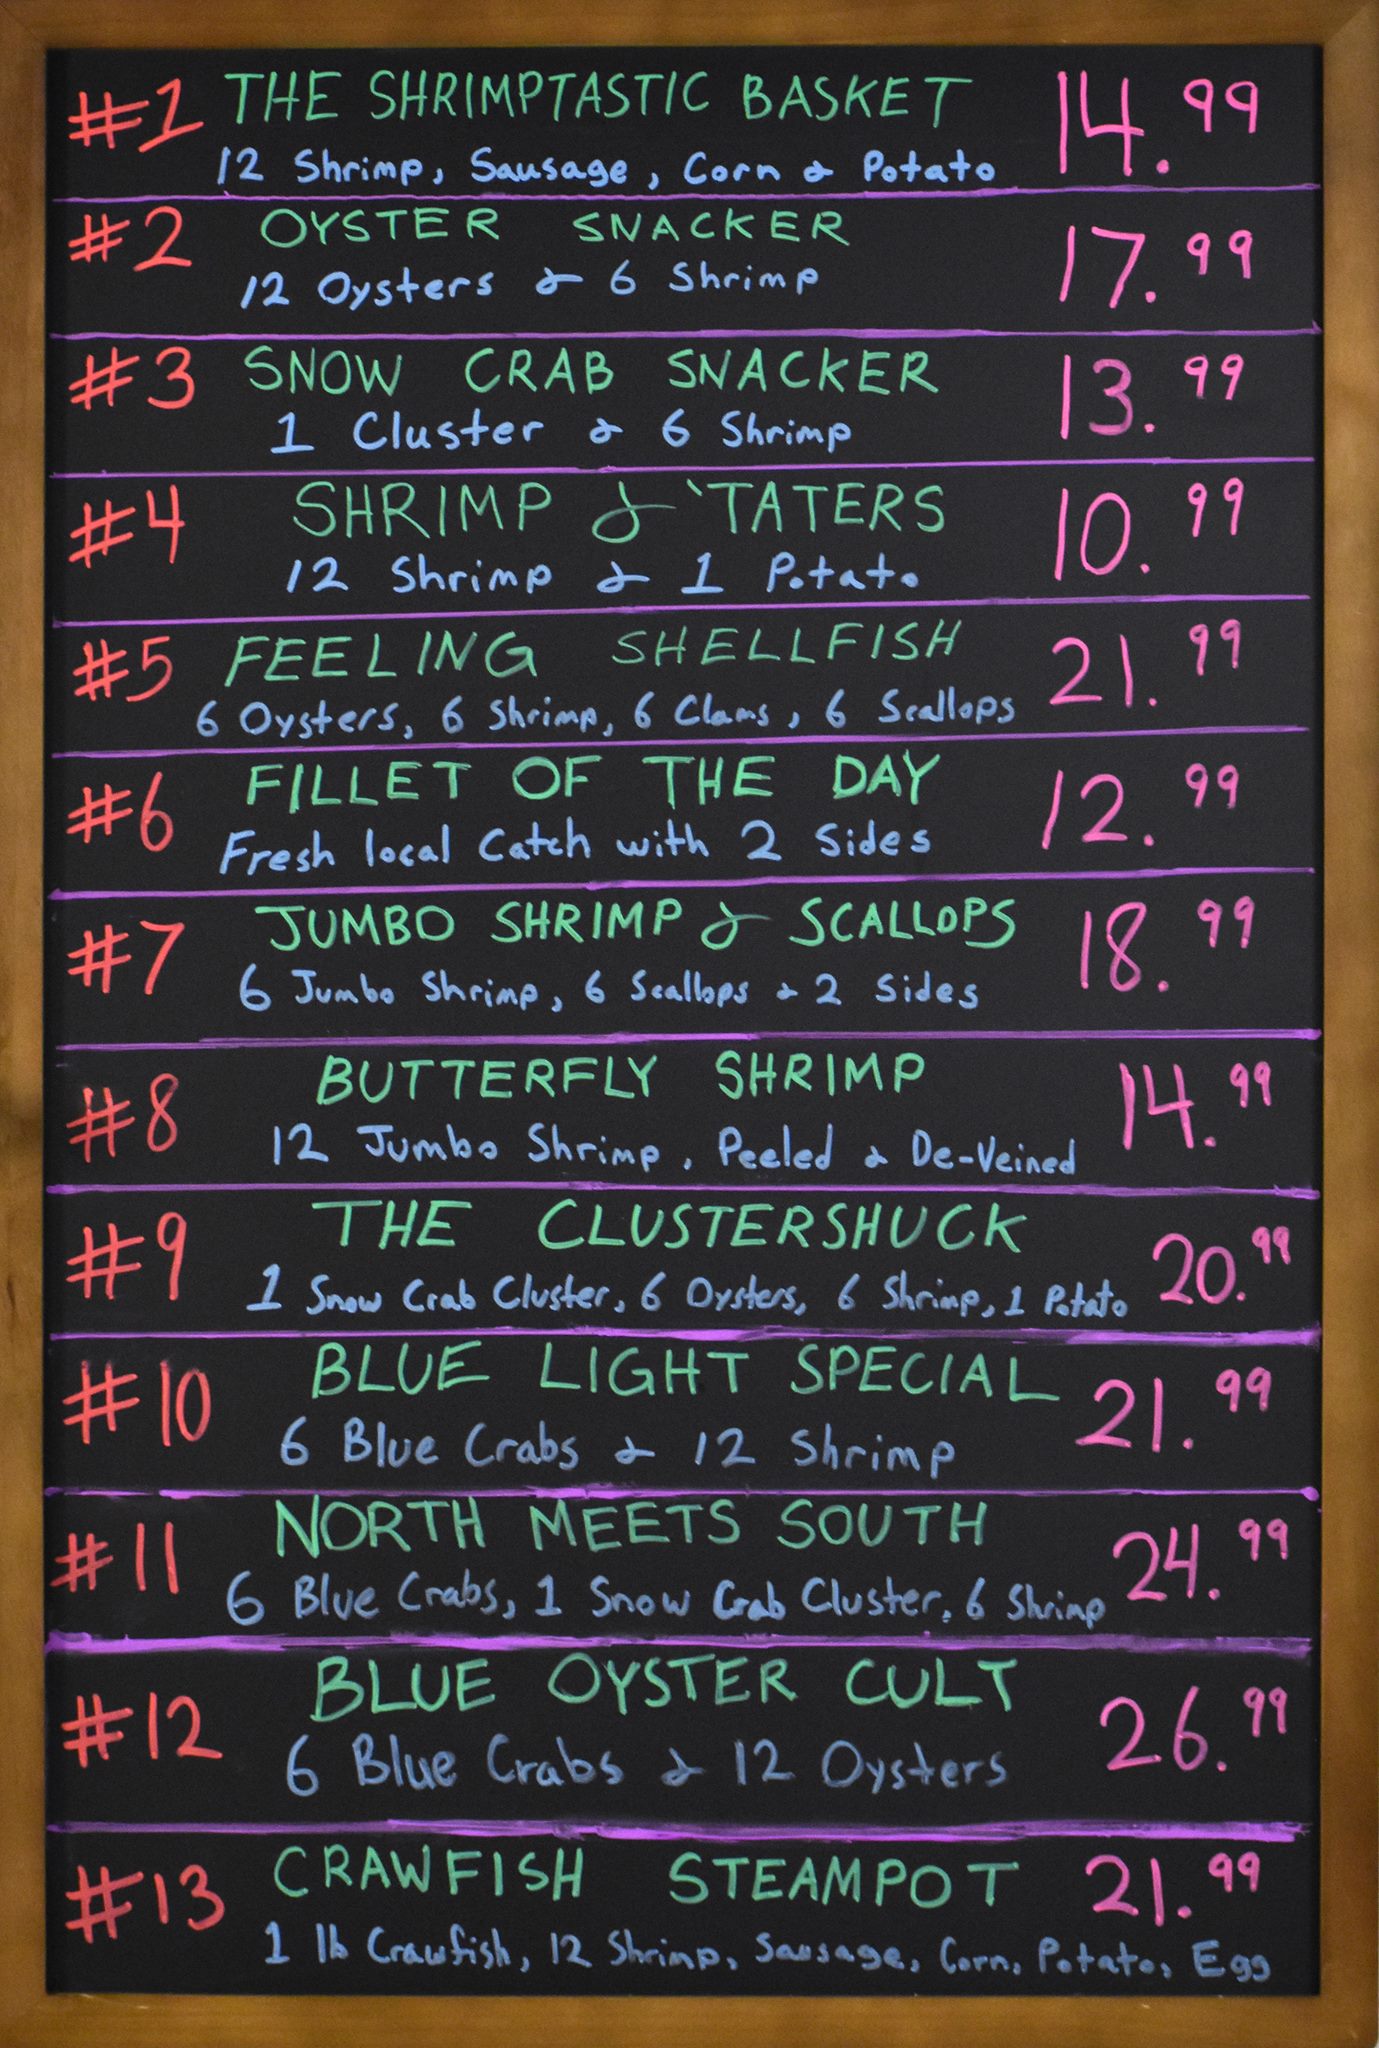 #1 THE SHRIMPTASTIC BASKET 14.99
12 Shrimp, Sausage, Corn & Potato
#2 OYSTER SNACKER 17.99
12 Oysters & 6 Shrimp
#3 SNOW CRAB SNACKER 13.99
1 Cluster & 6 Shrimp
#4 SHRIMP & 'TATERS 10.99
12 Shrimp & 1 Potato
#5 FEELING SHELLFISH 21.99
6 Oysters, 6 Shrimp, 6 Clams, 6 Scallops
#6 FILLET OF THE DAY 12.99
Fresh local Catch with 2 Sides
#7 JUMBO SHRIMP & SCALLOPS 18.99
6 Jumbo Shrimp, 6 Scallops & 2 Sides
#8 BUTTERFLY SHRIMP 14.99
12 Jumbo Shrimp, Peeled & De-Veined
#9 THE CLUSTERSHUCK 20.99
1 Snow Crab Cluster, 6 Oysters, 6 Shrimp, 1 Potato
#10 BLUE LIGHT SPECIAL 21.99
6 Blue Crabs & 12 Shrimp
#11 NORTH MEETS SOUTH 24.99
6 Blue Crabs, 1 Snow Crab Cluster, 6 Shrimp
#12 BLUE OYSTER CULT 26.99
6 Blue Crabs & 12 Oysters
#13 CRAWFISH STEAMPOT 21.99
1 lb Crawfish, 12 Shrimp, Sausage, Corn, Potato, Egg